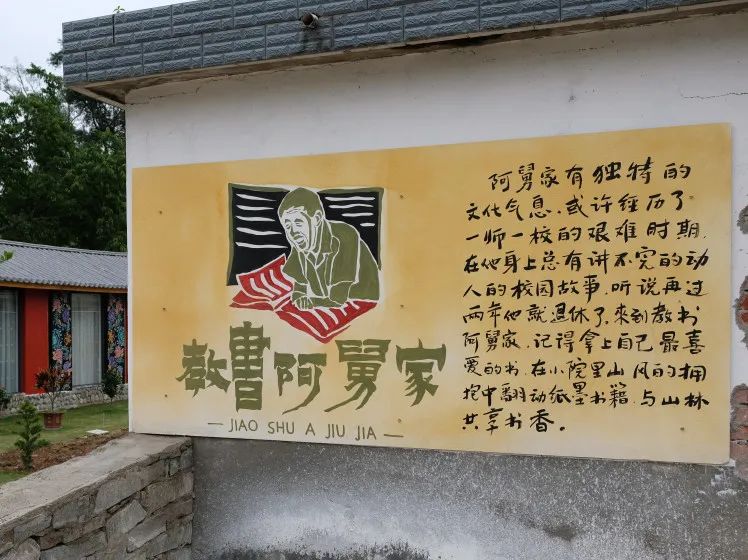 教書阿舅家
— JIAO SHU A JIU JIA —
阿舅家有独特的
文化气息.或许经历了
一师一校的艰难时期.
在他身上总有讲不完的动
人的校园故事.听说再过
两年他就退休了.來到教书
阿舅家.记得拿上自己最喜
爱的书.在小院里山风的拥
抱中翻动纸墨书籍.与山林
共享书香。